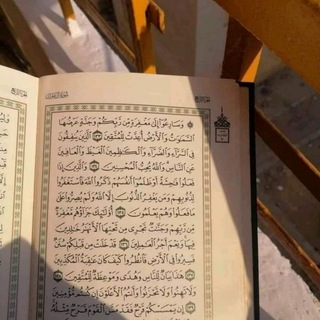 سُورَةُ آلِ عِمْرَانَ
الجزء الرابع
۞ وَسَارِعُوٓاْ إِلَىٰ مَغْفِرَةٍ مِّن رَّبِّكُمْ وَجَنَّةٍ عَرْضُهَا
ٱلسَّمَٰوَٰتُ وَٱلْأَرْضُ أُعِدَّتْ لِلْمُتَّقِينَ ١٣٣ ٱلَّذِينَ يُنفِقُونَ
فِي ٱلسَّرَّآءِ وَٱلضَّرَّآءِ وَٱلْكَٰظِمِينَ ٱلْغَيْظَ وَٱلْعَافِينَ
عَنِ ٱلنَّاسِ وَٱللَّهُ يُحِبُّ ٱلْمُحْسِنِينَ ١٣٤ وَٱلَّذِينَ إِذَا
فَعَلُواْ فَٰحِشَةً أَوْ ظَلَمُوٓاْ أَنفُسَهُمْ ذَكَرُواْ ٱللَّهَ فَٱسْتَغْفَرُواْ
لِذُنُوبِهِمْ وَمَن يَغْفِرُ ٱلذُّنُوبَ إِلَّا ٱللَّهُ وَلَمْ يُصِرُّواْ عَلَىٰ
مَا فَعَلُواْ وَهُمْ يَعْلَمُونَ ١٣٥ أُوْلَٰٓئِكَ جَزَآؤُهُم مَّغْفِرَةٌ
مِّن رَّبِّهِمْ وَجَنَّٰتٌ تَجْرِي مِن تَحْتِهَا ٱلْأَنْهَٰرُ خَٰلِدِينَ
فِيهَا وَنِعْمَ أَجْرُ ٱلْعَٰمِلِينَ ١٣٦ قَدْ خَلَتْ مِن قَبْلِكُمْ سُنَنٌ
فَسِيرُواْ فِي ٱلْأَرْضِ فَٱنظُرُواْ كَيْفَ كَانَ عَٰقِبَةُ ٱلْمُكَذِّبِينَ
١٣٧ هَٰذَا بَيَانٌ لِّلنَّاسِ وَهُدًى وَمَوْعِظَةٌ لِّلْمُتَّقِينَ ١٣٨
وَلَا تَهِنُواْ وَلَا تَحْزَنُواْ وَأَنتُمُ ٱلْأَعْلَوْنَ إِن كُنتُم مُّؤْمِنِينَ
١٣٩ إِن يَمْسَسْكُمْ قَرْحٌ فَقَدْ مَسَّ ٱلْقَوْمَ قَرْحٌ مِّثْلُهُۥ